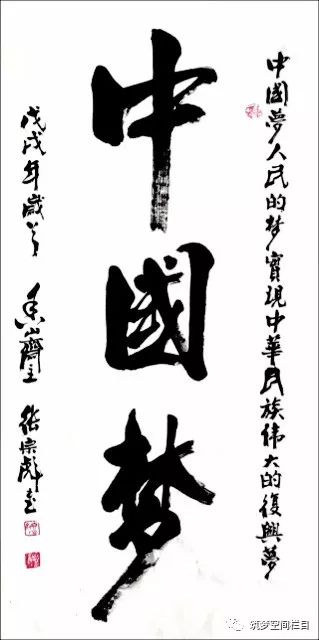 中國夢人民的梦實現中華民族伟大的復興夢
中國梦
戊戌年歲首 山齋主 宗彪書
筑梦空间栏目